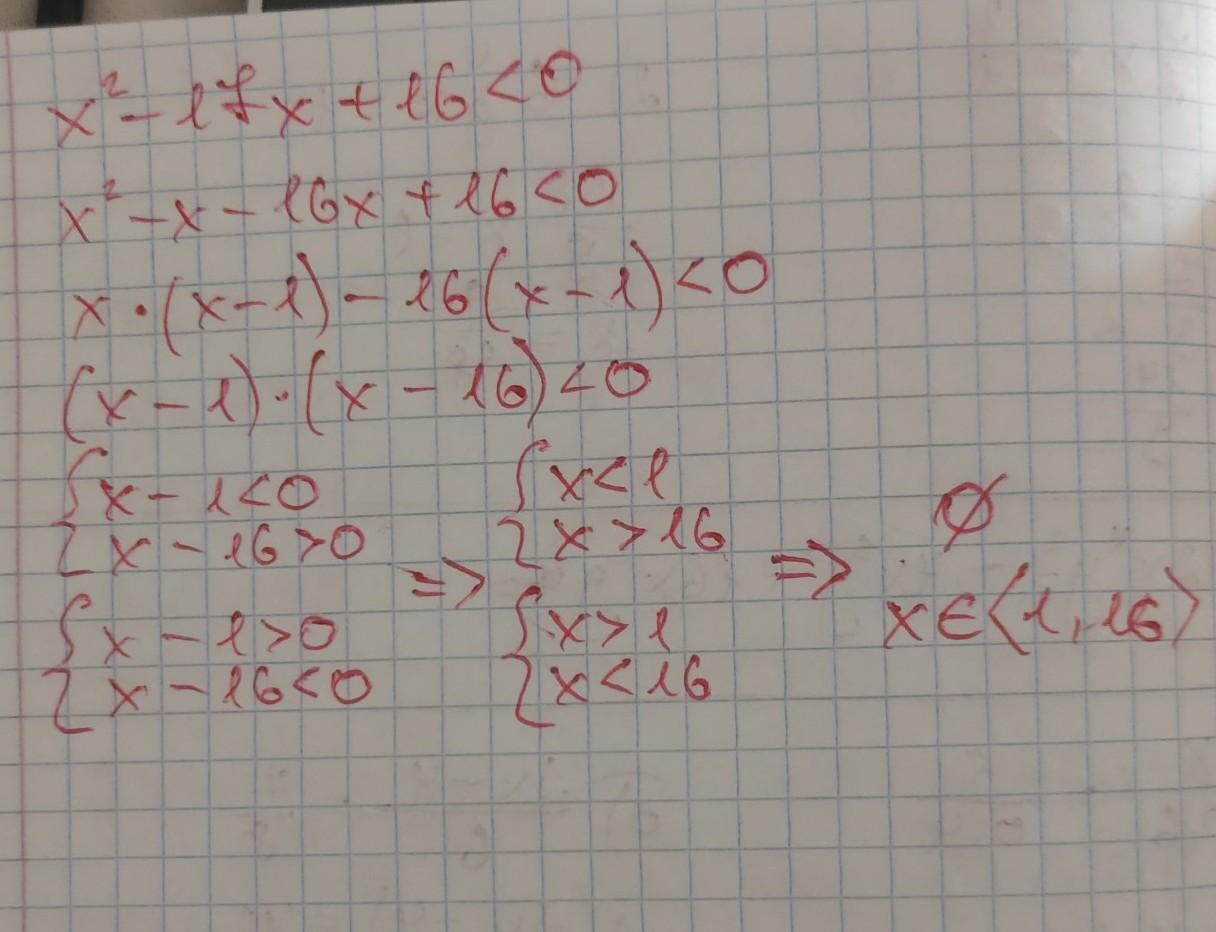 x² - 17x + 16 < 0
x² - x - 16x + 16 < 0
x · (x - 1) - 16(x - 1) < 0
(x - 1) · (x - 16) < 0
{ x - 1 < 0 { x < 1 ∅
{ x - 16 > 0 { x > 16
=> =>
{ x - 1 > 0 { x > 1 x ∈ ⟨1, 16⟩
{ x - 16 < 0 { x < 16